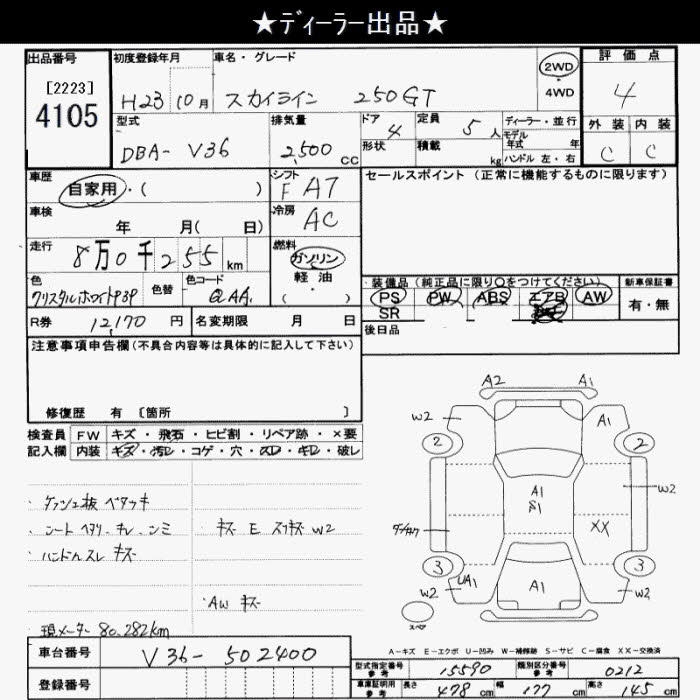 ★ディーラー出品★
出品番号 初度登録年月 車名・グレード 2WD 評価点
[2223] H23 10月 スカイライン 250GT 4WD 4
4105
型式 排気量 ドア 定員 ディーラー・並行 外装 内装
DBA- V36 2,500 cc 4 5人 モデル年式 年 C C
形状 積載 kg ハンドル 左・右
車歴 自家用・( ) シフト F A7 セールスポイント (正常に機能するものに限ります)
車検 年 月( 日) 冷房 AC
走行 8万0千255 km 燃料 ガソリン
軽・油
( )
色 色替 色コード 装備品 (純正品に限り○をつけてください) 新車保証書
クリスタルホワイト3P QAA PS PW ABS エアB AW 有・無
SR
R券 12,170 円 名変期限 月 日 後日品
注意事項申告欄(不具合内容等は具体的に記入して下さい)
修復歴 有 〔箇所 〕
検査員 FW キズ・飛石・ヒビ割・リペア跡・×要
記入欄 内装 キズ・汚レ・コゲ・穴・スレ・キレ・破レ
・ダッシュ板 ベタツキ
・シート ヘタリ・キレ・シミ ・キズ E スリキズ W2
・ハンドルスレ キズ
・AW キズ
現メーター 80,282km
A2 A1
W2 A1
2 2
A1
S1
W2
XX
3 3
UA1 A1
W2 W2
スペア
A-キズ E-エクボ U-凹み W-補修跡 S-サビ C-腐食 XX-交換済
車台番号 V36-502400
登録番号
型式指定番号 参考 15590 類別区分番号 参考 0212
車庫証明用 参考 長さ 478 cm 幅 177 cm 高さ 145 cm